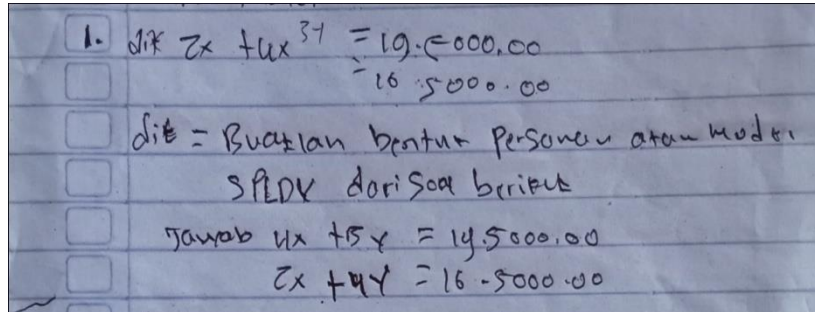 1. dik 2x + 4x 3y = 19.5000,00
= 16.5000.00
dit = Buatlah bentuk Persamaan atau model
SPLDV dari Soal berikut
Jawab 4x + 3y = 19.5000,00
2x + 4y = 16.5000.00